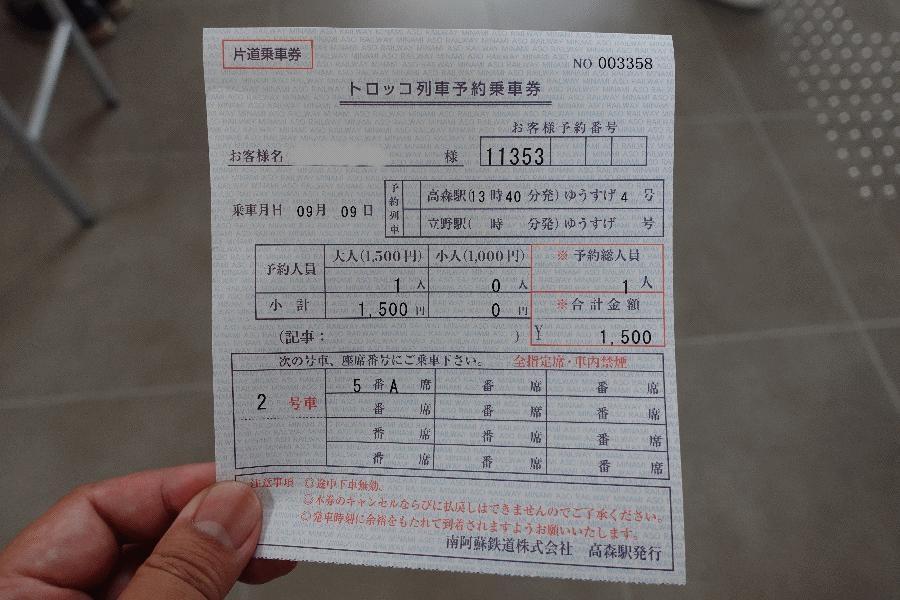 片道乗車券
NO 003358
トロッコ列車予約乗車券
お客様予約番号
お客様名 様 11353
乗車月日 09月 09日
予約列車
高森駅(13時40分発)ゆうすげ4号
立野駅( 時 分発)ゆうすげ 号
予約人員 大人(1,500円) 小人(1,000円) ※予約総人員
1人 0人 1人
小計 1,500円 0円 ※合計金額
¥ 1,500
(記事: )
次の号車、座席番号にご乗車下さい。 全指定席・車内禁煙
2号車 5番A席 番 席 番 席
番 席 番 席 番 席
番 席 番 席 番 席
番 席 番 席 番 席
注意事項 ◎途中下車無効。
◎本券のキャンセルならびに払戻しはできませんのでご了承ください。
◎発車時刻に余裕をもたれて到着されますようお願いいたします。
南阿蘇鉄道株式会社 高森駅発行